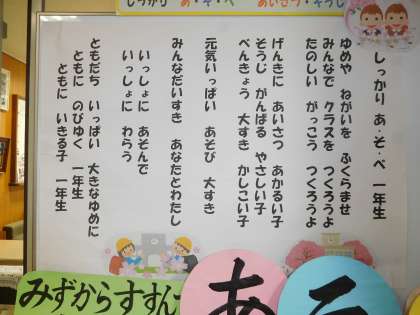 しっかり あ・そ・べ
あいさつ・そうじ
しっかり あ・そ・べ 一年生
ゆめや ねがいを ふくらませ
みんなで クラスを つくろうよ
たのしい がっこう つくろうよ
げんきに あいさつ あかるい子
そうじ がんばる やさしい子
べんきょう 大すき かしこい子
元気いっぱい あそび 大すき
みんなだいすき あなたとわたし
いっしょに あそんで
いっしょに わらう
ともだち いっぱい 大きなゆめに
ともに のびゆく 一年生
ともに いきる子 一年生
みずからすすん
あ